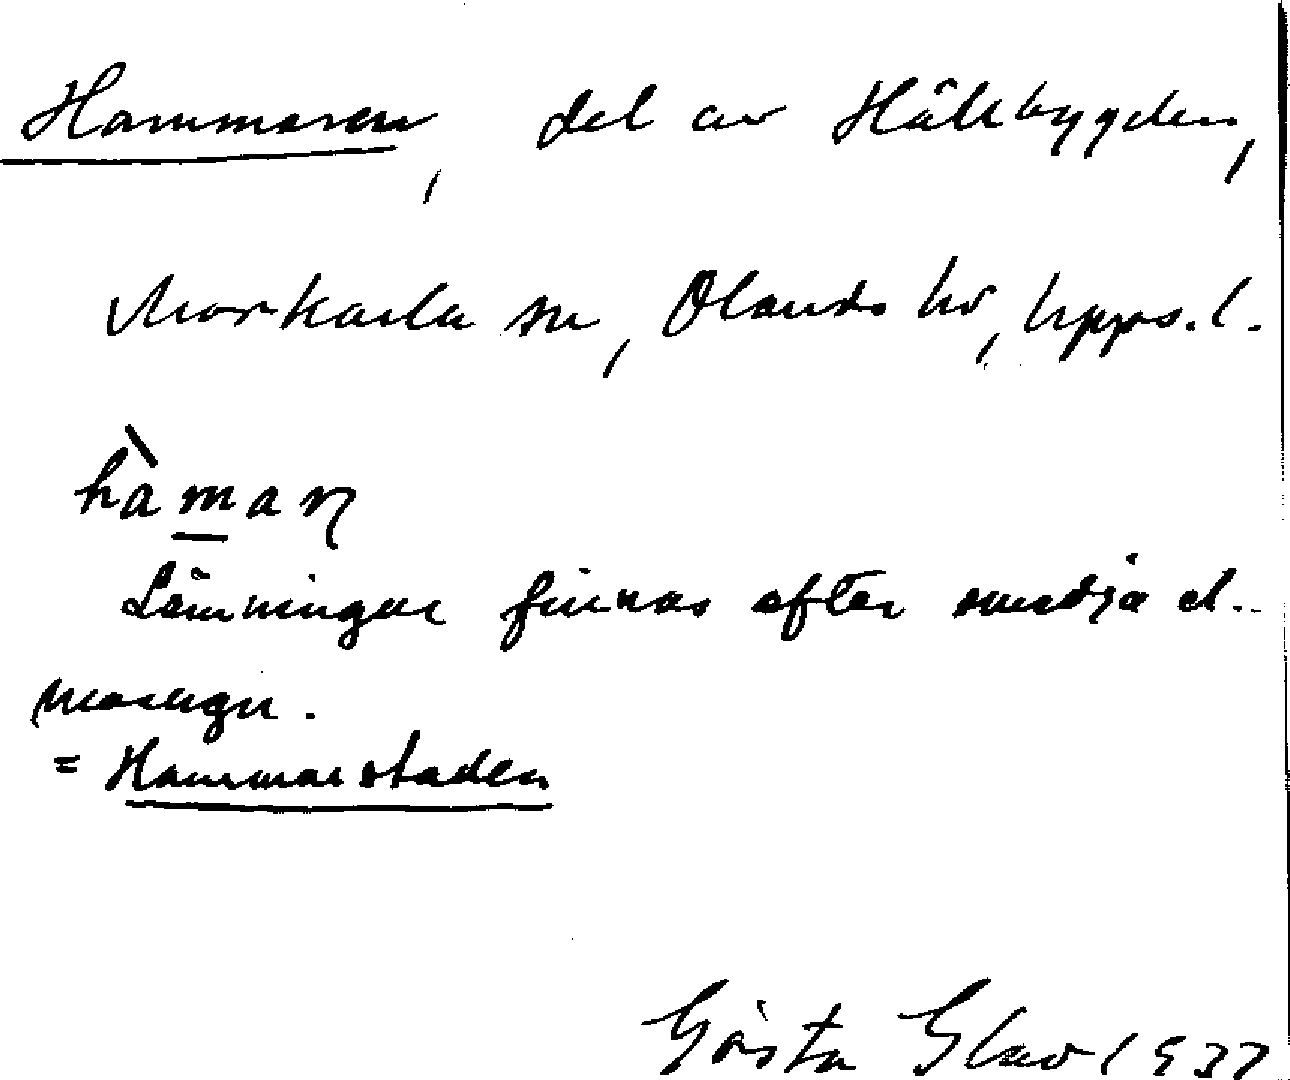 Hammaren, del av Hållbygden,
Morkarla sn, Olands hd, Upps. l.
hàmaɳ
Lämningar finnas efter smedja el.
masugn.
= Hammarstaden
Gösta 1937